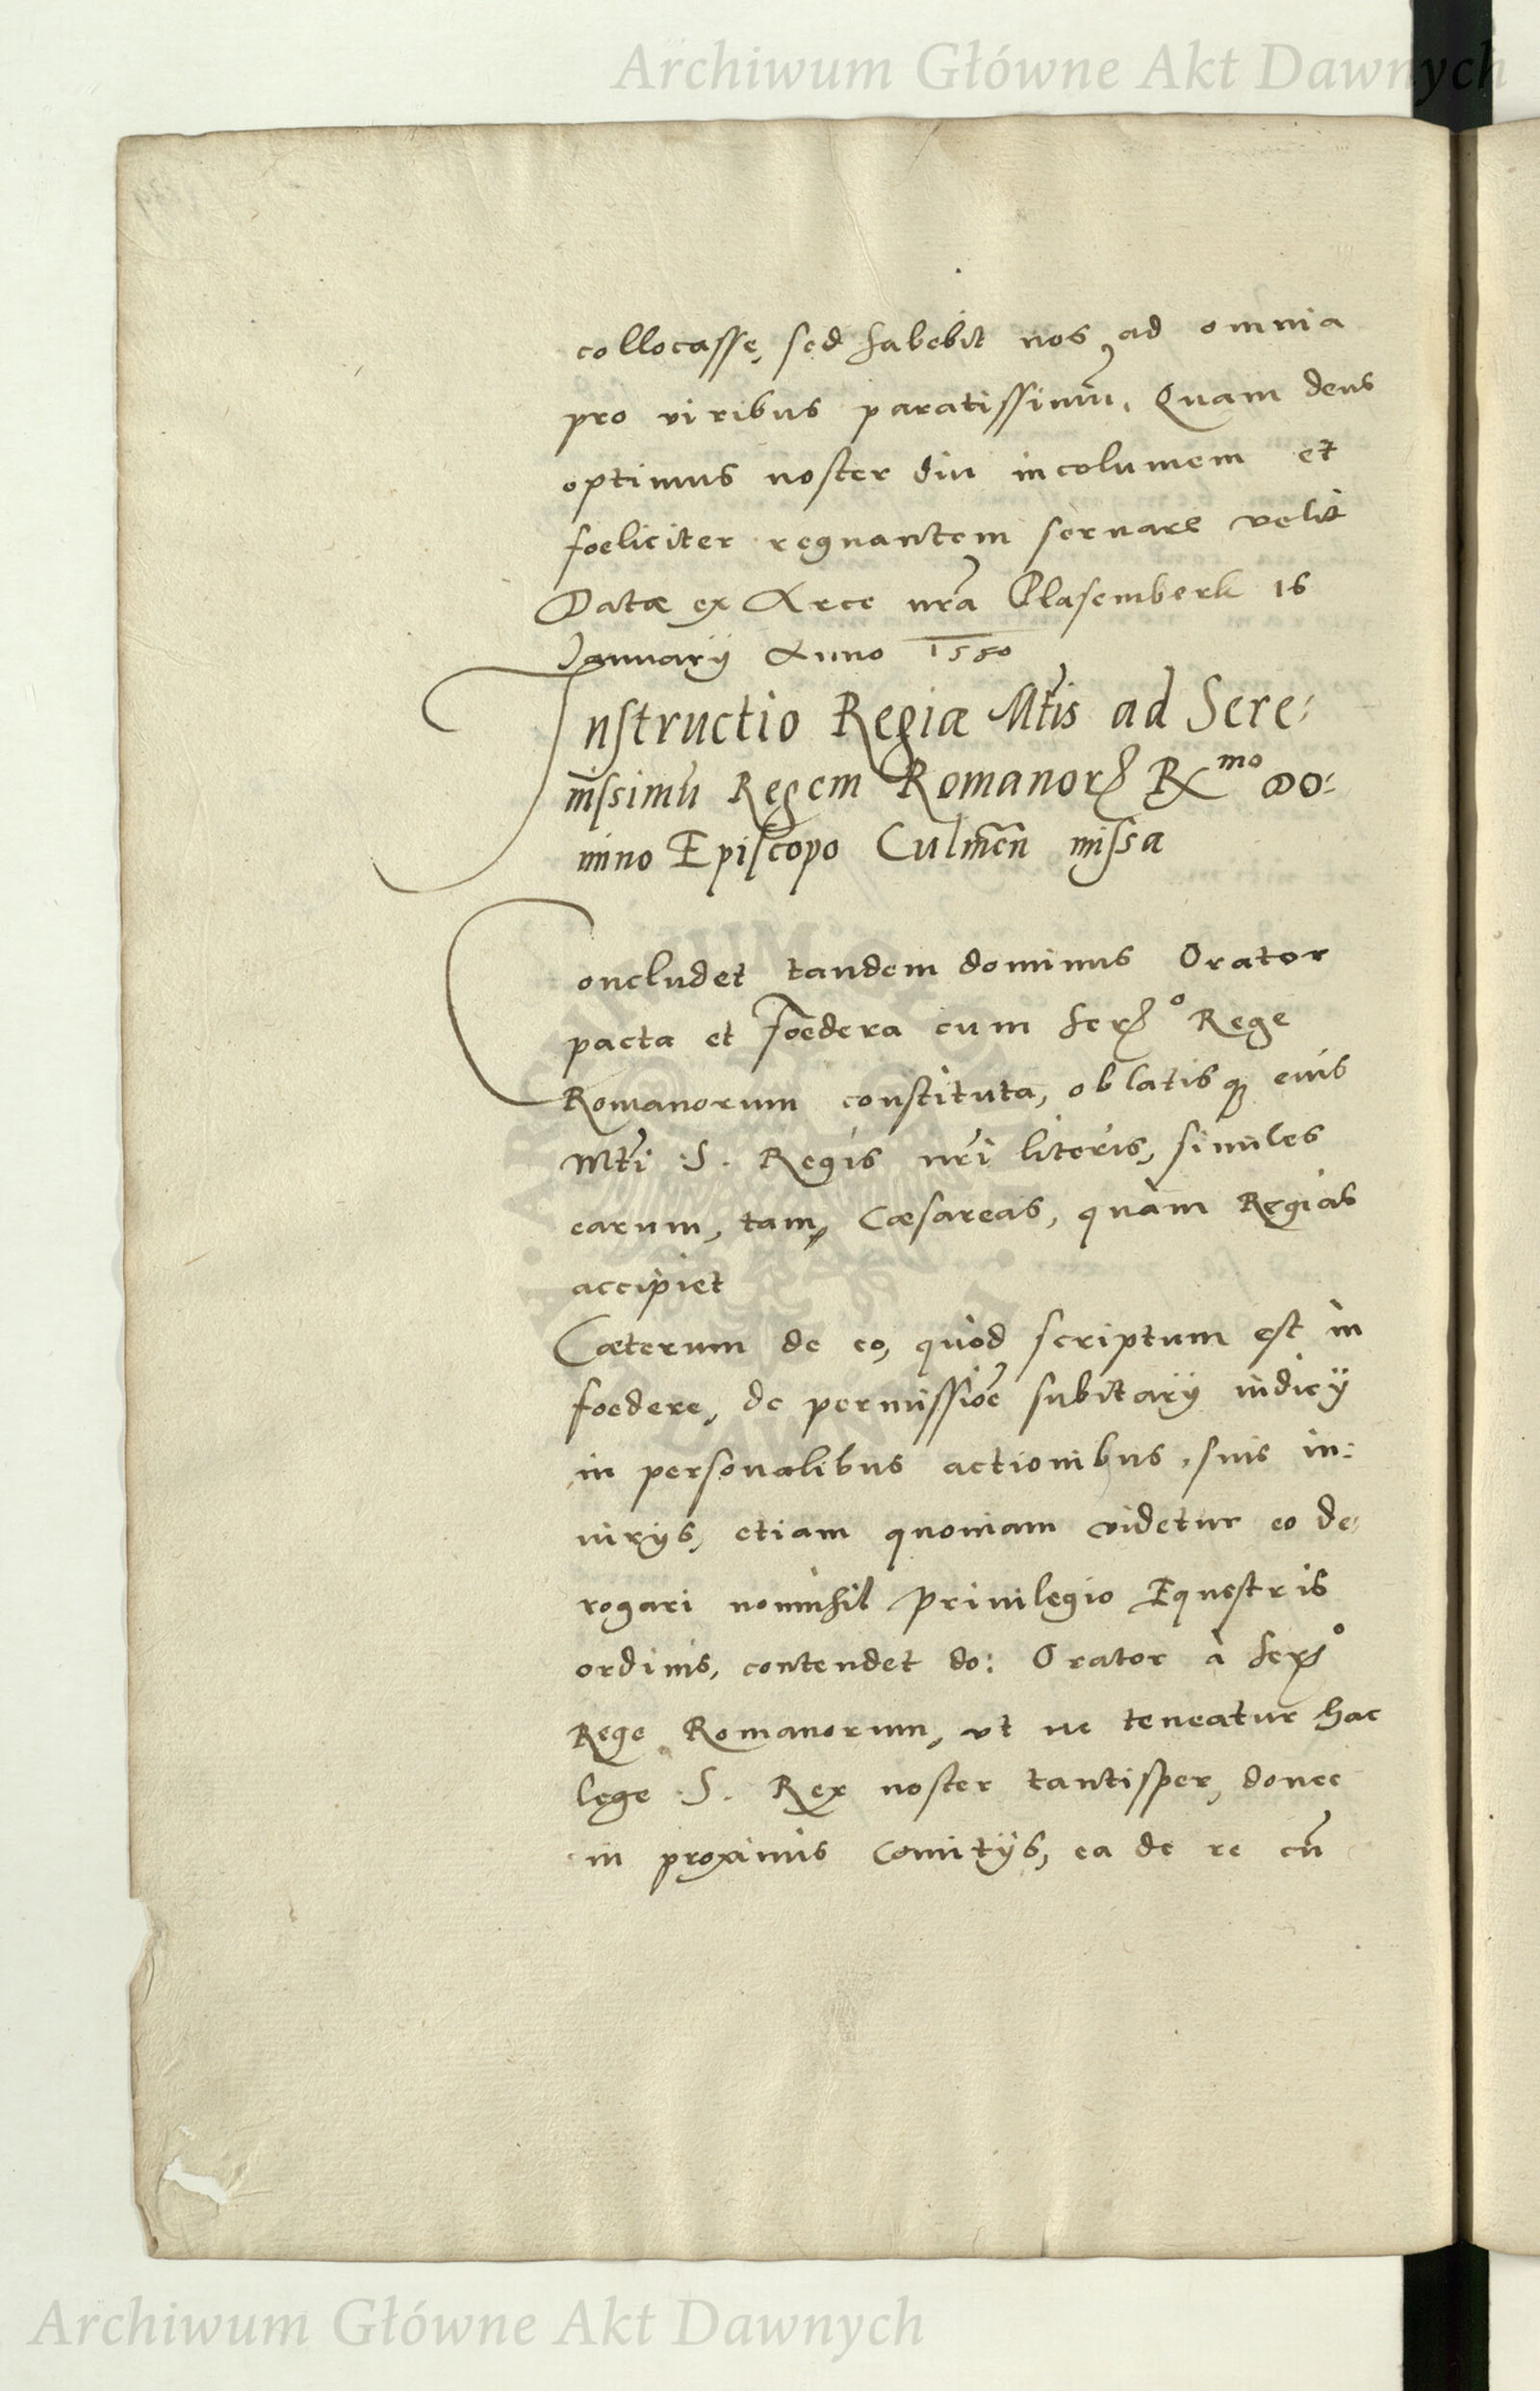 Archiwum Główne Akt Dawnych
collocasse, sed habebit nos ad omnia
pro viribus paratissimũ. Quam deus
optimus noster diu incolumem et
foeliciter regnantem seruare velit
Datæ ex Arce nrã Blasemberk 16
January Anno 1550
Instructio Regiæ Mtis ad Sere:
nissimũ Regem Romanor Rmo Do:
mino Episcopo Culmeñ missa
Concludet tandem dominus Orator
pacta et foedera cum Sero Rege
Romanorum constituta, oblatisq eius
Mti S. Regis nri literis, similes
earum, tam, Cæsareas, quàm Regias
accipiet
Cæterum de eo, quòd scriptum est in
foedere, de permissioe subitarÿ iudicÿ
in personalibus actionibus, suis in:
iurÿs, etiam quoniam videtur eo de:
rogari nonnihil Priuilegio Equestris
ordinis, contendet do: Orator à Sero
Rege Romanorum, vt ne teneatur hac
lege S. Rex noster tantisper, donec
in proximis Comitÿs, ea de re cũ
Archiwum Główne Akt Dawnych